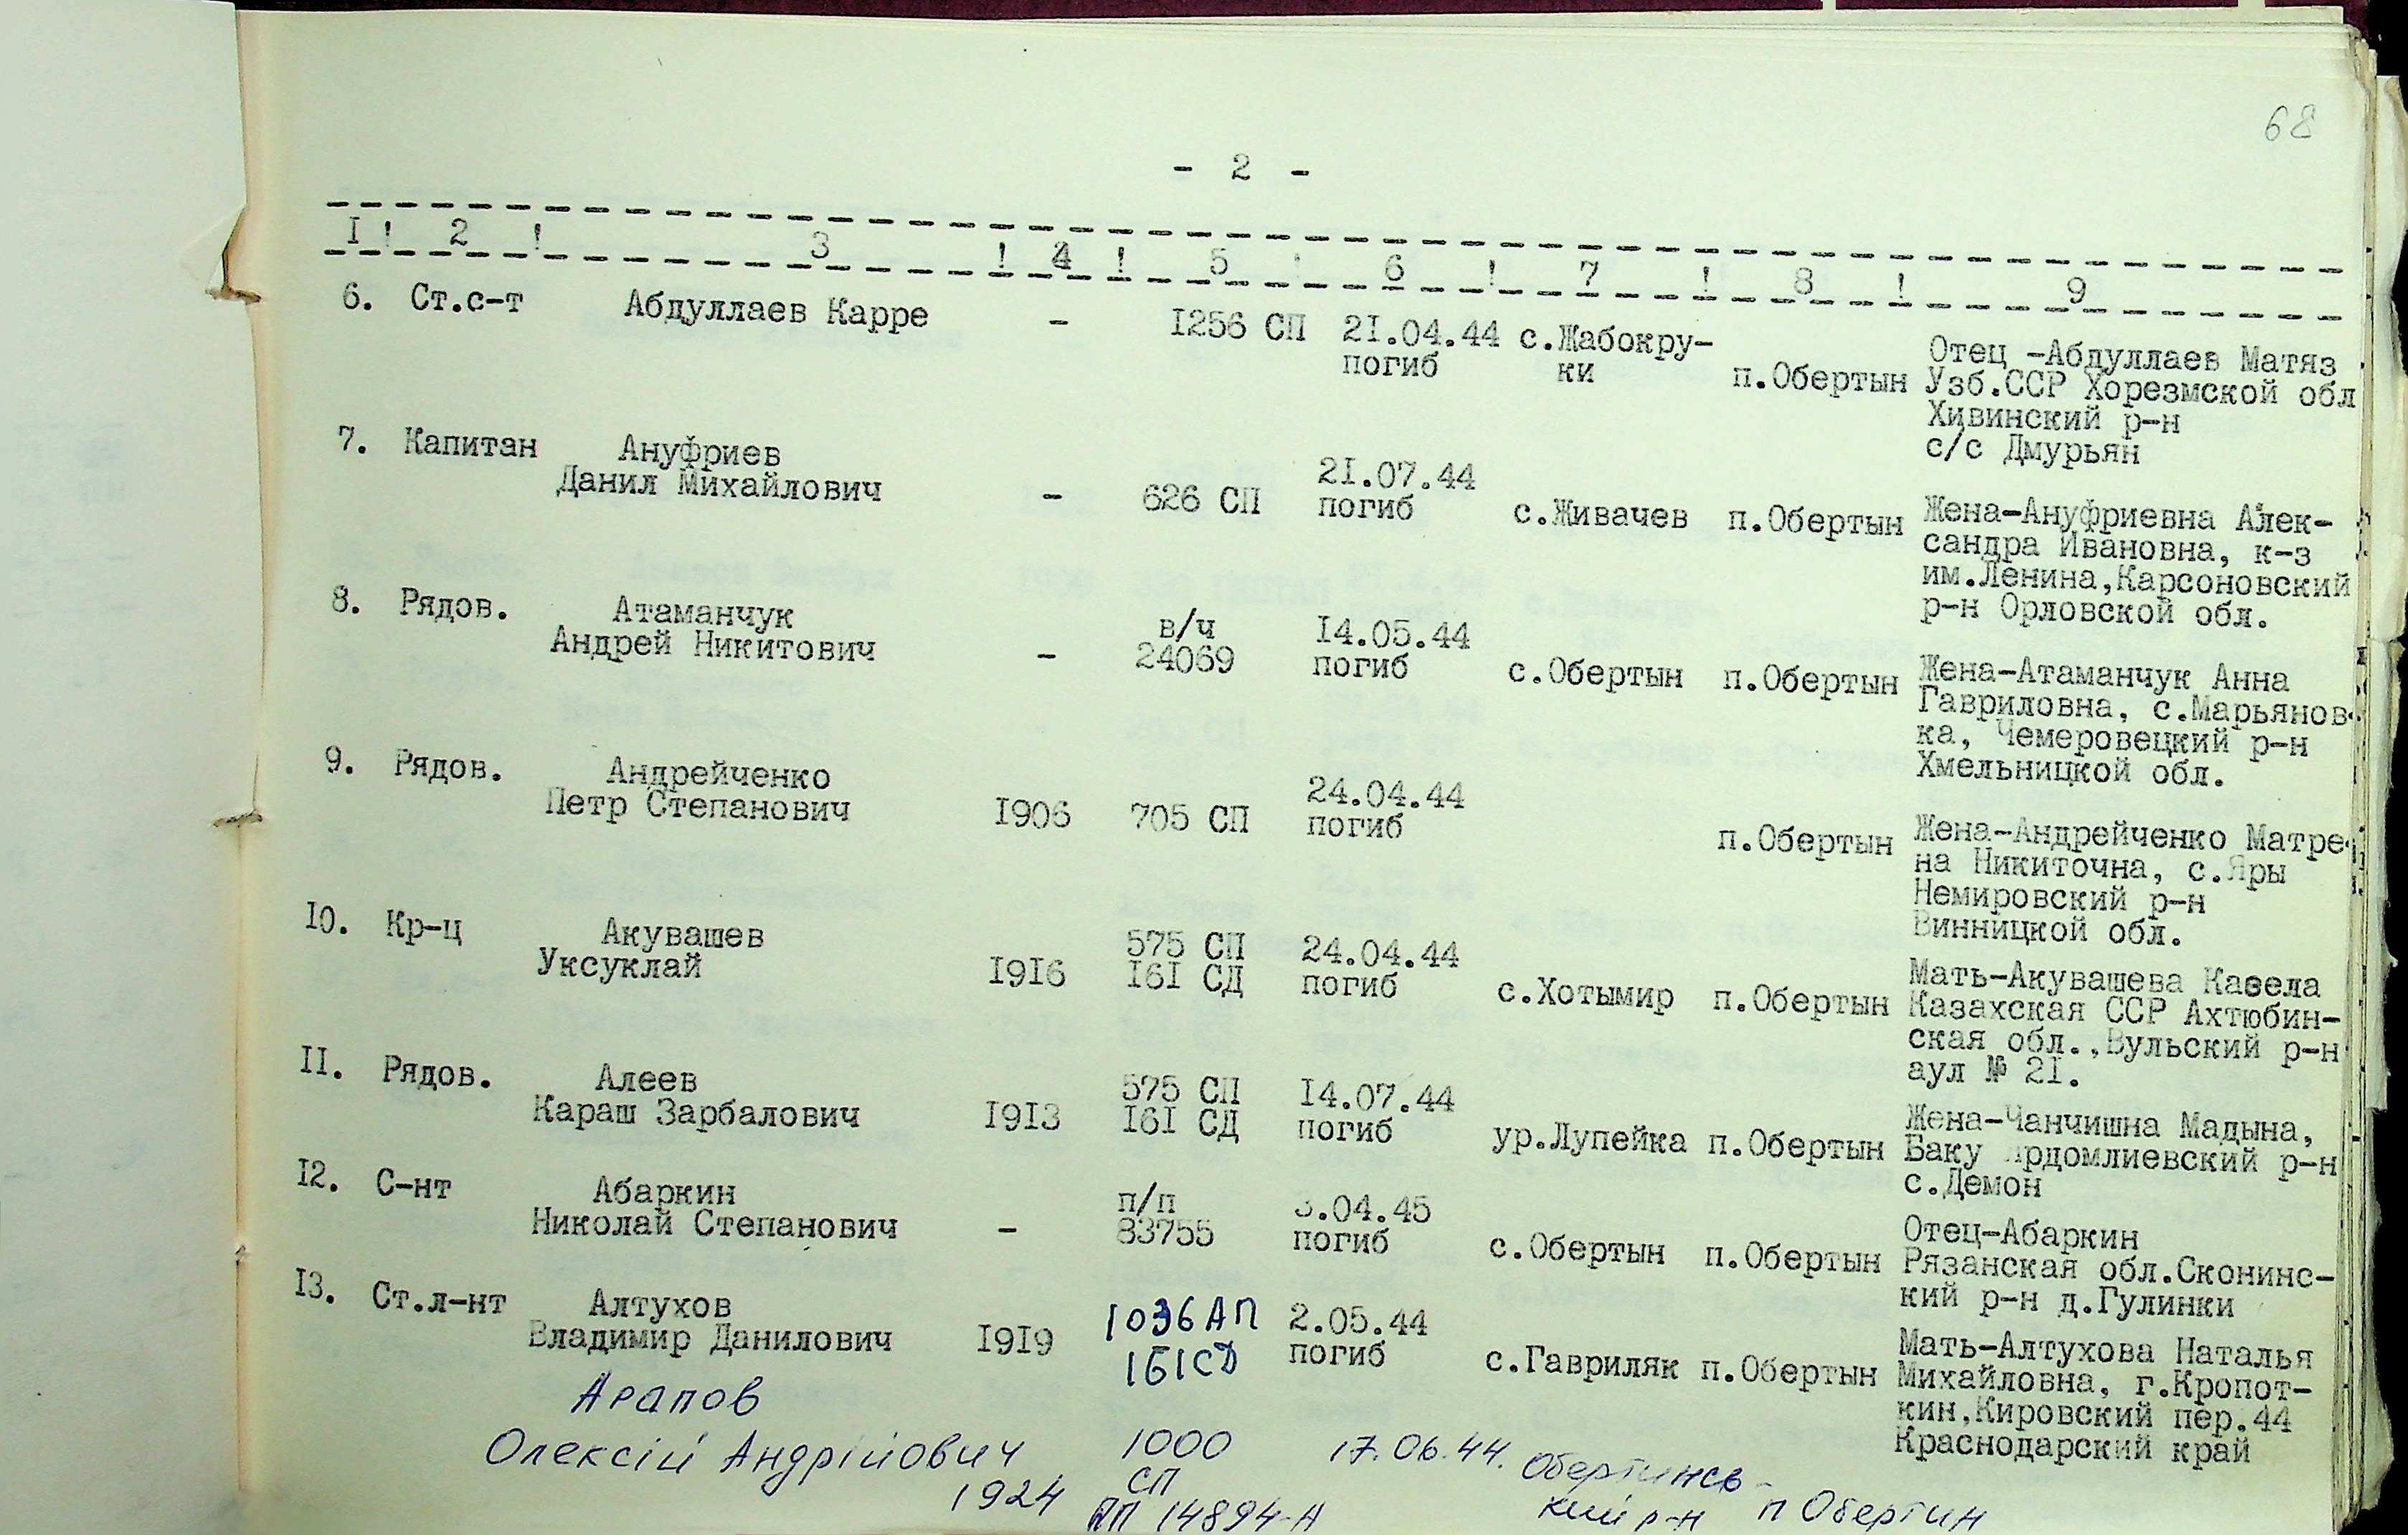 68
- 2 -
I ! 2 ! 3 ! 4 ! 5 ! 6 ! 7 ! 8 ! 9
6. Ст.с-т Абдуллаев Карре - I256 СП 2I.04.44 с.Жабокру- Отец -Абдуллаев Матяз
погиб ки п.Обертын Узб.ССР Хорезмской обл
Хивинский р-н
с/с Дмурьян
7. Капитан Ануфриев 2I.07.44
Данил Михайлович - 626 СП погиб с.Живачев п.Обертын Жена-Ануфриевна Алек-
сандра Ивановна, к-з
им.Ленина,Карсоновский
р-н Орловской обл.
8. Рядов. Атаманчук в/ч I4.05.44
Андрей Никитович - 24069 погиб с.Обертын п.Обертын Жена-Атаманчук Анна
Гавриловна, с.Марьянов-
ка, Чемеровецкий р-н
Хмельницкой обл.
9. Рядов. Андрейченко 24.04.44
Петр Степанович I906 705 СП погиб п.Обертын Жена-Андрейченко Матре-
на Никиточна, с.Яры
Немировский р-н
Винницкой обл.
I0. Кр-ц Акувашев 575 СП 24.04.44
Уксуклай I9I6 I6I СД погиб с.Хотымир п.Обертын Мать-Акувашева Казела
Казахская ССР Ахтюбин-
ская обл.,Вульский р-н
аул № 2I.
II. Рядов. Алеев 575 СП I4.07.44
Караш Зарбалович I9I3 I6I СД погиб ур.Лупейка п.Обертын Жена-Чанчишна Мадына,
Баку рдомлиевский р-н
с.Демон
I2. С-нт Абаркин п/п 3.04.45
Николай Степанович - 83755 погиб с.Обертын п.Обертын Отец-Абаркин
Рязанская обл.Сконинс-
кий р-н д.Гулинки
I3. Ст.л-нт Алтухов 1036 АП 2.05.44
Владимир Данилович I9I9 161СД погиб с.Гавриляк п.Обертын Мать-Алтухова Наталья
Михайловна, г.Кропот-
кин,Кировский пер.44
Краснодарский край
Арапов
Олексій Андрійович 1000 17.06.44. Обертинсь-
1924 СП кий р-н п Обертин
ПП 14894-А